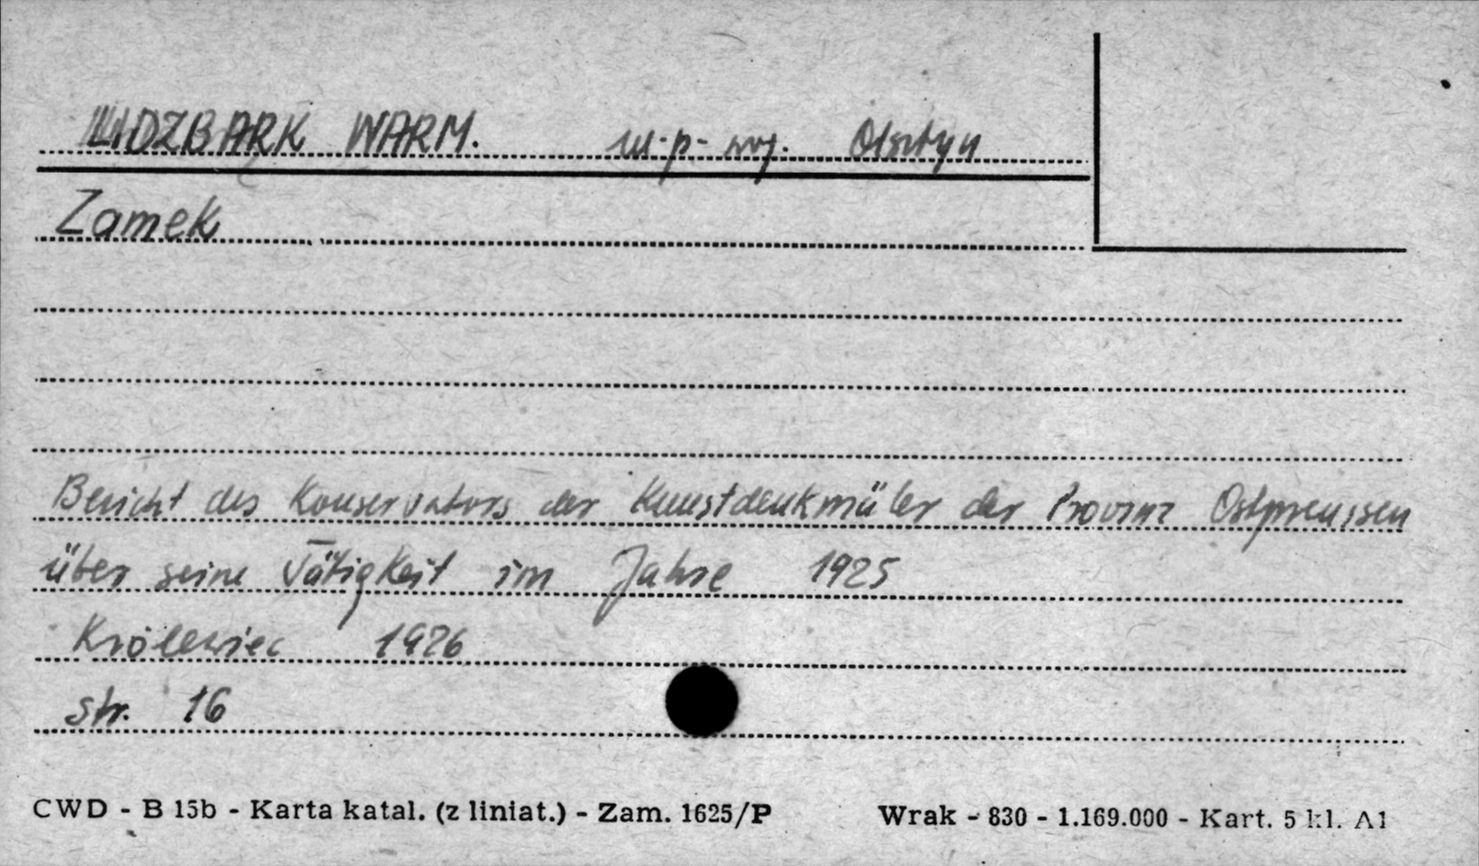 LIDZBARK WARM. m-p- woj. Olsztyn
Zamek
Bericht des Konservators der Kunstdenkmäler der Provinz Ostpreussen
über seine Tätigkeit im Jahre 1925
Królewiec 1926
str. 16
CWD - B 15b - Karta katal. (z liniat.) - Zam. 1625/P Wrak - 830 - 1.169.000 - Kart. 5 kl. A1